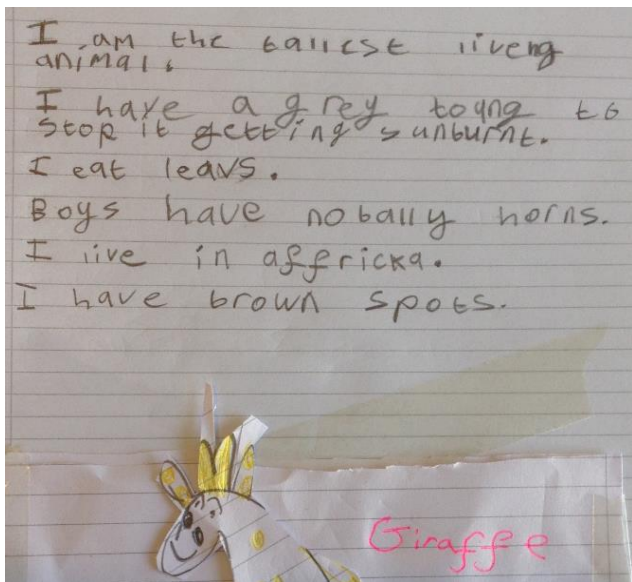 I am the tallest liveng
animal.
I have a grey toung to
stop it getting sunburnt.
I eat leavs.
Boys have nobally horns.
I live in affricka.
I have brown spots.
Giraffe